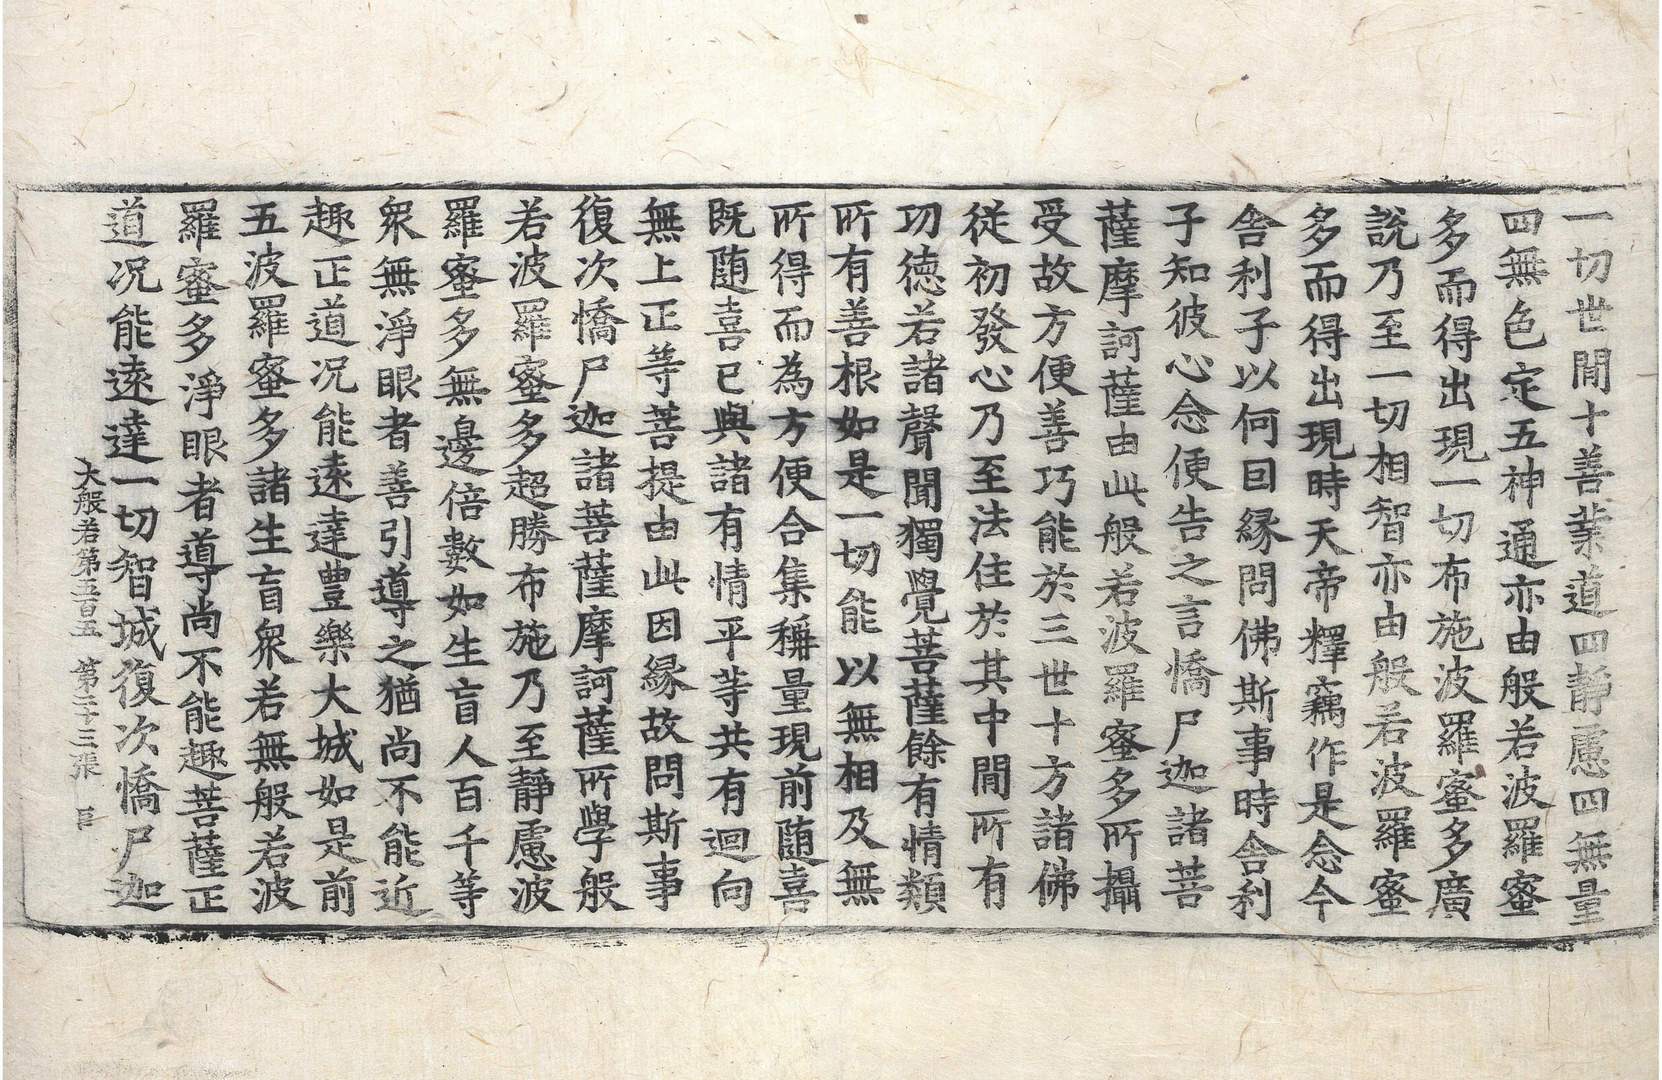 一切世閒十善業道四靜慮四無量
四無色定五神通亦由般若波羅蜜
多而得出現一切布施波羅蜜多廣
說乃至一切相智亦由般若波羅蜜
多而得出現時天帝釋竊作是念今
舍利子以何囙緣問佛斯事時舍利
子知彼心念便告之言憍尸迦諸菩
薩摩訶薩由此般若波羅蜜多所攝
受故方便善巧能於三世十方諸佛
從初發心乃至法住於其中閒所有
功德若諸聲聞獨覺菩薩餘有情類
所有善根如是一切能以無相及無
所得而為方便合集稱量現前随喜
既随喜已與諸有情平等共有迴向
無上正等菩提由此因緣故問斯事
復次憍尸迦諸菩薩摩訶薩所學般
若波羅蜜多超勝布施乃至靜慮波
羅蜜多無邊倍數如生盲人百千等
衆無淨眼者善引導之猶尚不能近
趣正道况能遠達豊樂大城如是前
五波羅蜜多諸生盲衆若無般若波
羅蜜多淨眼者導尚不能趣菩薩正
道况能遠達一切智城復次憍尸迦
大般若第五百五 第二十三張 巨